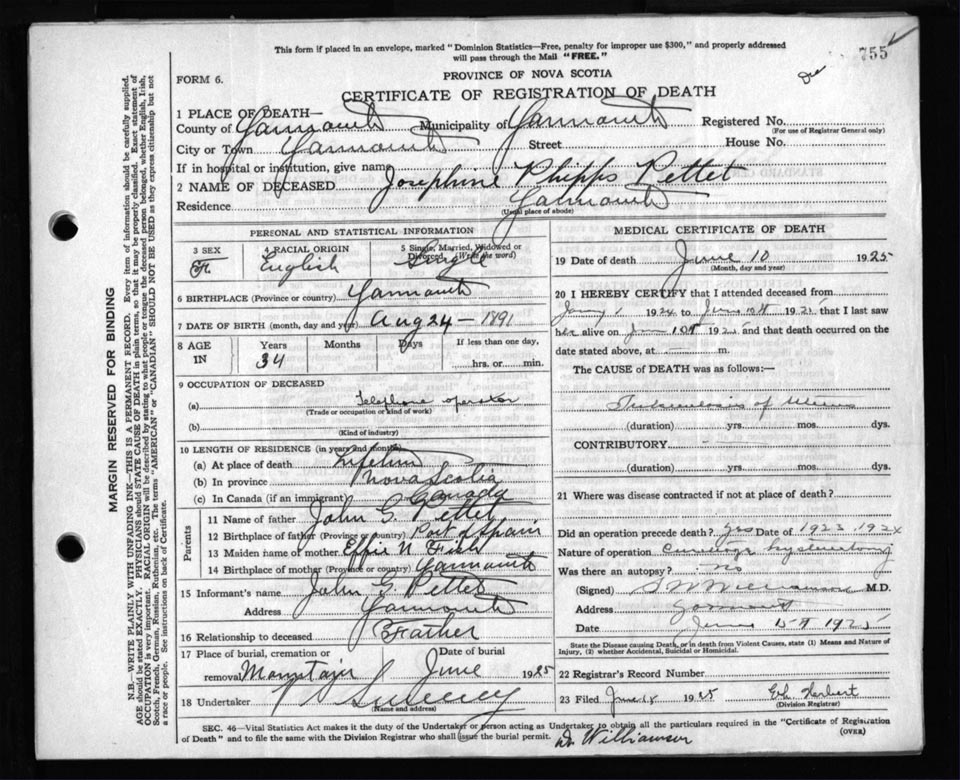 This form if placed in an envelope, marked "Dominion Statistics—Free, penalty for improper use $300," and properly addressed
will pass through the Mail "FREE."
755
FORM 6.
PROVINCE OF NOVA SCOTIA
CERTIFICATE OF REGISTRATION OF DEATH
1 PLACE OF DEATH—
County of Yarmouth Municipality of Yarmouth Registered No.
(For use of Registrar General only)
City or Town Yarmouth Street House No.
If in hospital or institution, give name
2 NAME OF DECEASED Josephine Phipps Pettet
Residence Yarmouth
(Usual place of abode)
PERSONAL AND STATISTICAL INFORMATION
3 SEX 4 RACIAL ORIGIN 5 Single, Married, Widowed or Divorced, (Write the word)
F. English Single
6 BIRTHPLACE (Province or country) Yarmouth
7 DATE OF BIRTH (month, day and year) Aug 24 — 1891
8 AGE IN Years Months Days If less than one day,
34 hrs. or min.
9 OCCUPATION OF DECEASED
(a) Telephone operator
(Trade or occupation or kind of work)
(b)
(Kind of industry)
10 LENGTH OF RESIDENCE (in years and months)
(a) At place of death Lifetime
(b) In province Nova Scotia
(c) In Canada (if an immigrant) Canada
Parents
11 Name of father John G. Pettet
12 Birthplace of father (Province or country) Port of Spain
13 Maiden name of mother Effie N. Fish
14 Birthplace of mother (Province or country) Yarmouth
15 Informant's name John G. Pettet
Address Yarmouth
16 Relationship to deceased Father
17 Place of burial, cremation or removal Date of burial
Mountain June 1925
18 Undertaker V Sweeney
(Name and address)
MEDICAL CERTIFICATE OF DEATH
19 Date of death June 10 1925
(Month, day and year)
20 I HEREBY CERTIFY that I attended deceased from
1924 to June 10th 1925 that I last saw
her alive on June 10th 1925 and that death occurred on the
date stated above, at m.
The CAUSE of DEATH was as follows:—
Tuberculosis of Uterus
(duration) yrs. mos. dys.
CONTRIBUTORY
(duration) yrs. mos. dys.
21 Where was disease contracted if not at place of death?
Did an operation precede death? yes Date of 1923 1924
Nature of operation Curettage hysterectomy
Was there an autopsy? No
(Signed) Williamson M.D.
Address Yarmouth
Date June 1925
State the Disease causing Death, or in death from Violent Causes, state (1) Means and Nature of
Injury, (2) whether Accidental, Suicidal or Homicidal.
22 Registrar's Record Number
23 Filed June 18 1925 Herbert
(Division Registrar)
SEC. 46—Vital Statistics Act makes it the duty of the Undertaker or person acting as Undertaker to obtain all the particulars required in the "Certificate of Registration
of Death" and to file the same with the Division Registrar who shall issue the burial permit.
(OVER)
Dr. Williamson
MARGIN RESERVED FOR BINDING
N.B. WRITE PLAINLY WITH UNFADING INK—THIS IS A PERMANENT RECORD. Every item of information should be carefully supplied.
AGE should be stated EXACTLY. PHYSICIANS should STATE CAUSE OF DEATH in plain terms, so that it may be properly classified. Exact statement of
OCCUPATION is very important. RACIAL ORIGIN will be described by stating to what people or tongue the deceased person belonged, whether English, Irish,
Scotch, French, German, Russian, Ruthenian, etc. The terms "AMERICAN" or "CANADIAN" SHOULD NOT BE USED as they express citizenship but not
a race or people. See instructions on back of Certificate.